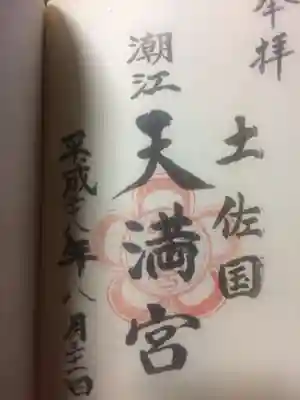 奉拝
土佐国
潮江
天満宮
平成廿八年八月廿一日